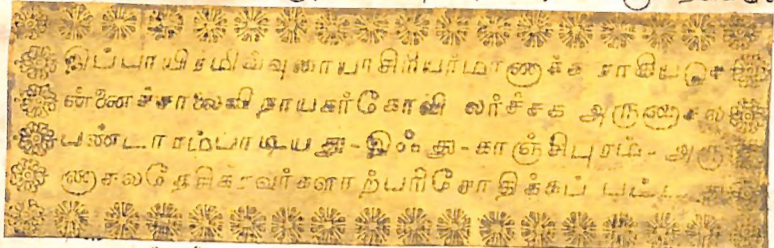 இப்பாயிரமிவ்வுரையாசிரியர்மாணாக்க ராகியடுச
ன்னைச்சாலைவிநாயகர்கோவி லர்ச்சக அருணாசல
பண்டாரம்பாடியது-இஃது-காஞ்சிபுரம்-அரு
ணாசலதேசிகரவர்களாற்பரிசோதிக்கப்